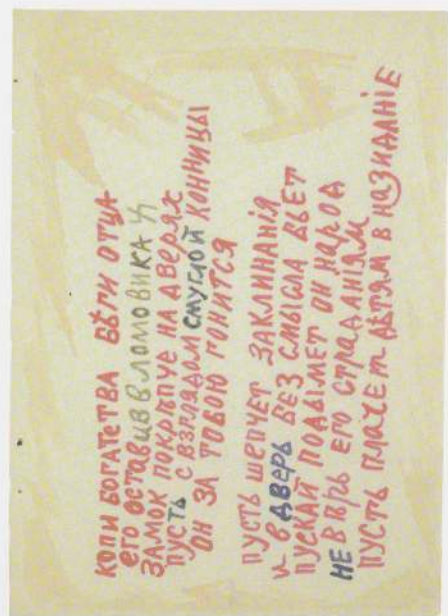 КОПИ БОГАТЕТВА БѢГИ ОТЦА
ЕГО ОСТАВИВ ВЛОМОВИКА У
ЗАМОК ПОКРѢПЧЕ НА ДВЕРЯХ
ПУСТЬ С ВЗГЛЯДОМ СМУГЛОЙ КОННИЦЫ
ОН ЗА ТОБОЮ ГОНИТСЯ
ПУСТЬ ШЕПЧЕТ ЗАКЛИНАНІЯ
И В ДВЕРЬ БЕЗ СМЫСЛА БЬЕТ
ПУСКАЙ ПОДЫМЕТ ОН НАРОД
НЕ ВѢРЬ ЕГО СТРАДАНІЯМ
ПУСТЬ ПЛАЧЕТ ДѢТЯМ В НАЗИДАНІЕ